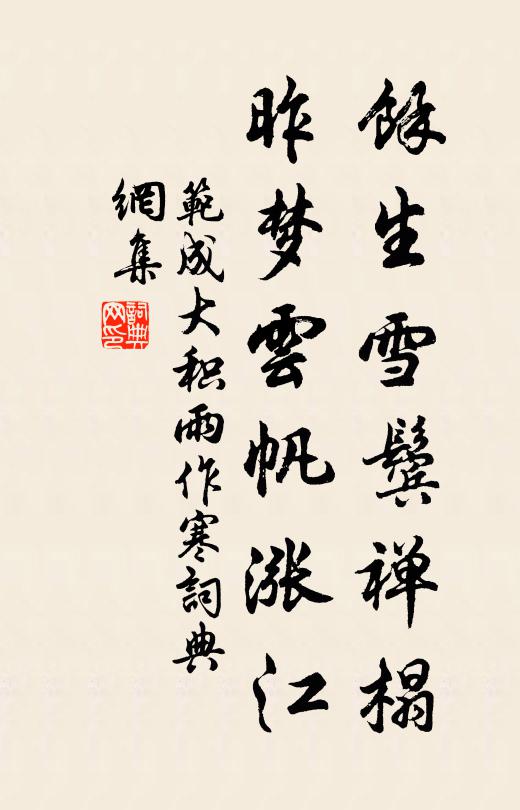 餘生雪鬓禅榻
昨梦雲帆涨江
範成大积雨作寒詞典
網集
詞典
网印